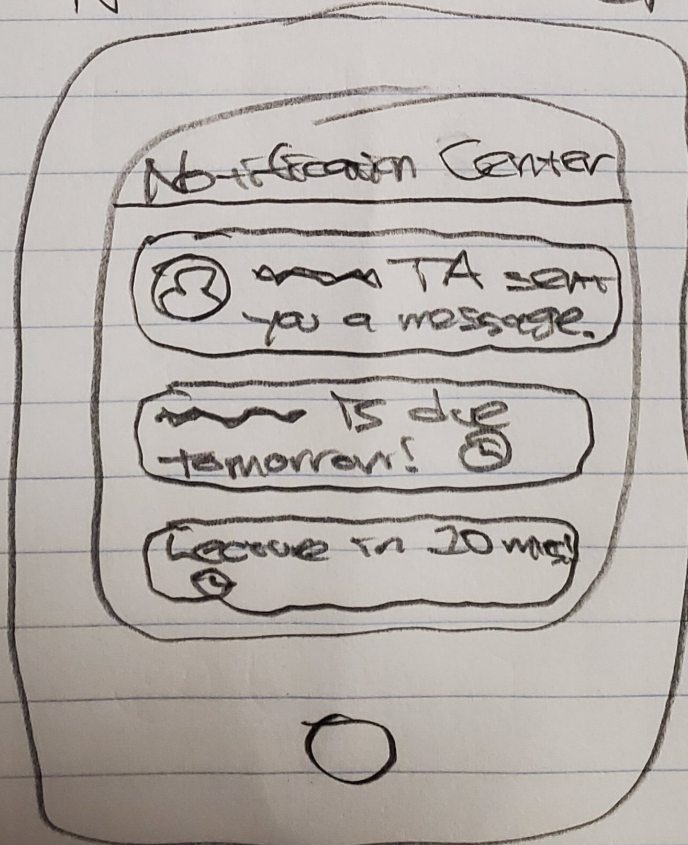 Notification Center
TA sent
you a message.
is due
tomorrow!
Lecture in 10 mins!